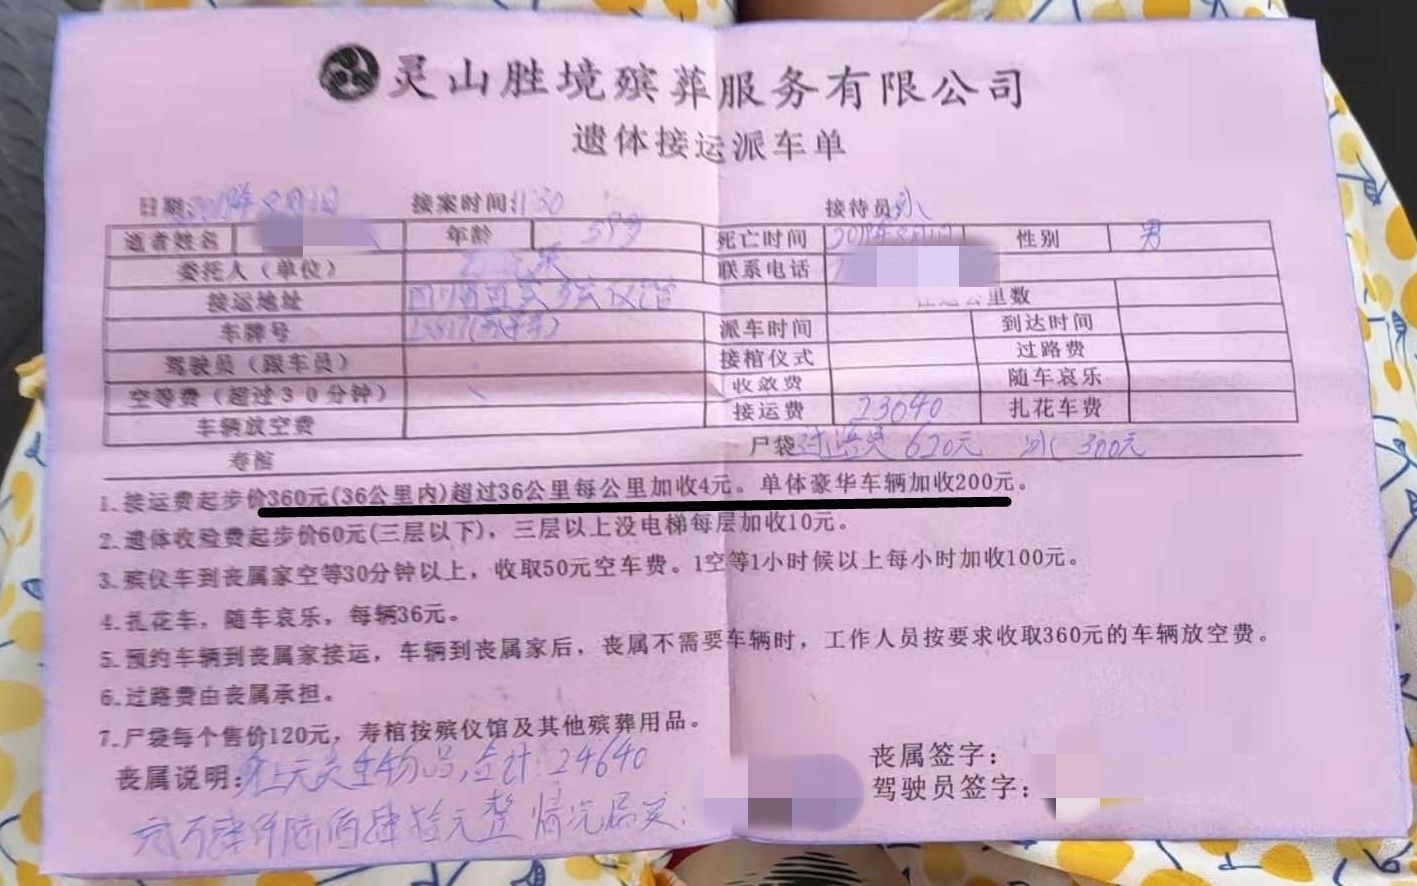 灵山胜境殡葬服务有限公司
遗体接运派车单
日期: 接案时间:11:30 接待员
逝者姓名 年龄 59岁 死亡时间 性别 男
委托人（单位） 联系电话
接运地址 公里数
车牌号 派车时间 到达时间
驾驶员（跟车员） 接棺仪式 过路费
空等费（超过30分钟） 收敛费 随车哀乐
车辆放空费 接运费 23040 扎花车费
寿棺 尸袋 过路费 620元 冰 300元
1.接运费起步价360元(36公里内)超过36公里每公里加收4元。单体豪华车辆加收200元。
2.遗体收殓费起步价60元(三层以下)，三层以上没电梯每层加收10元。
3.殡仪车到丧属家空等30分钟以上，收取50元空车费。1空等1小时候以上每小时加收100元。
4.扎花车，随车哀乐，每辆36元。
5.预约车辆到丧属家接运，车辆到丧属家后，丧属不需要车辆时，工作人员按要求收取360元的车辆放空费。
6.过路费由丧属承担。
7.尸袋每个售价120元，寿棺按殡仪馆及其他殡葬用品。
丧属说明:身上无贵重物品,合计:24640 丧属签字:
驾驶员签字:
贰万肆仟陆佰肆拾元整 情况属实: